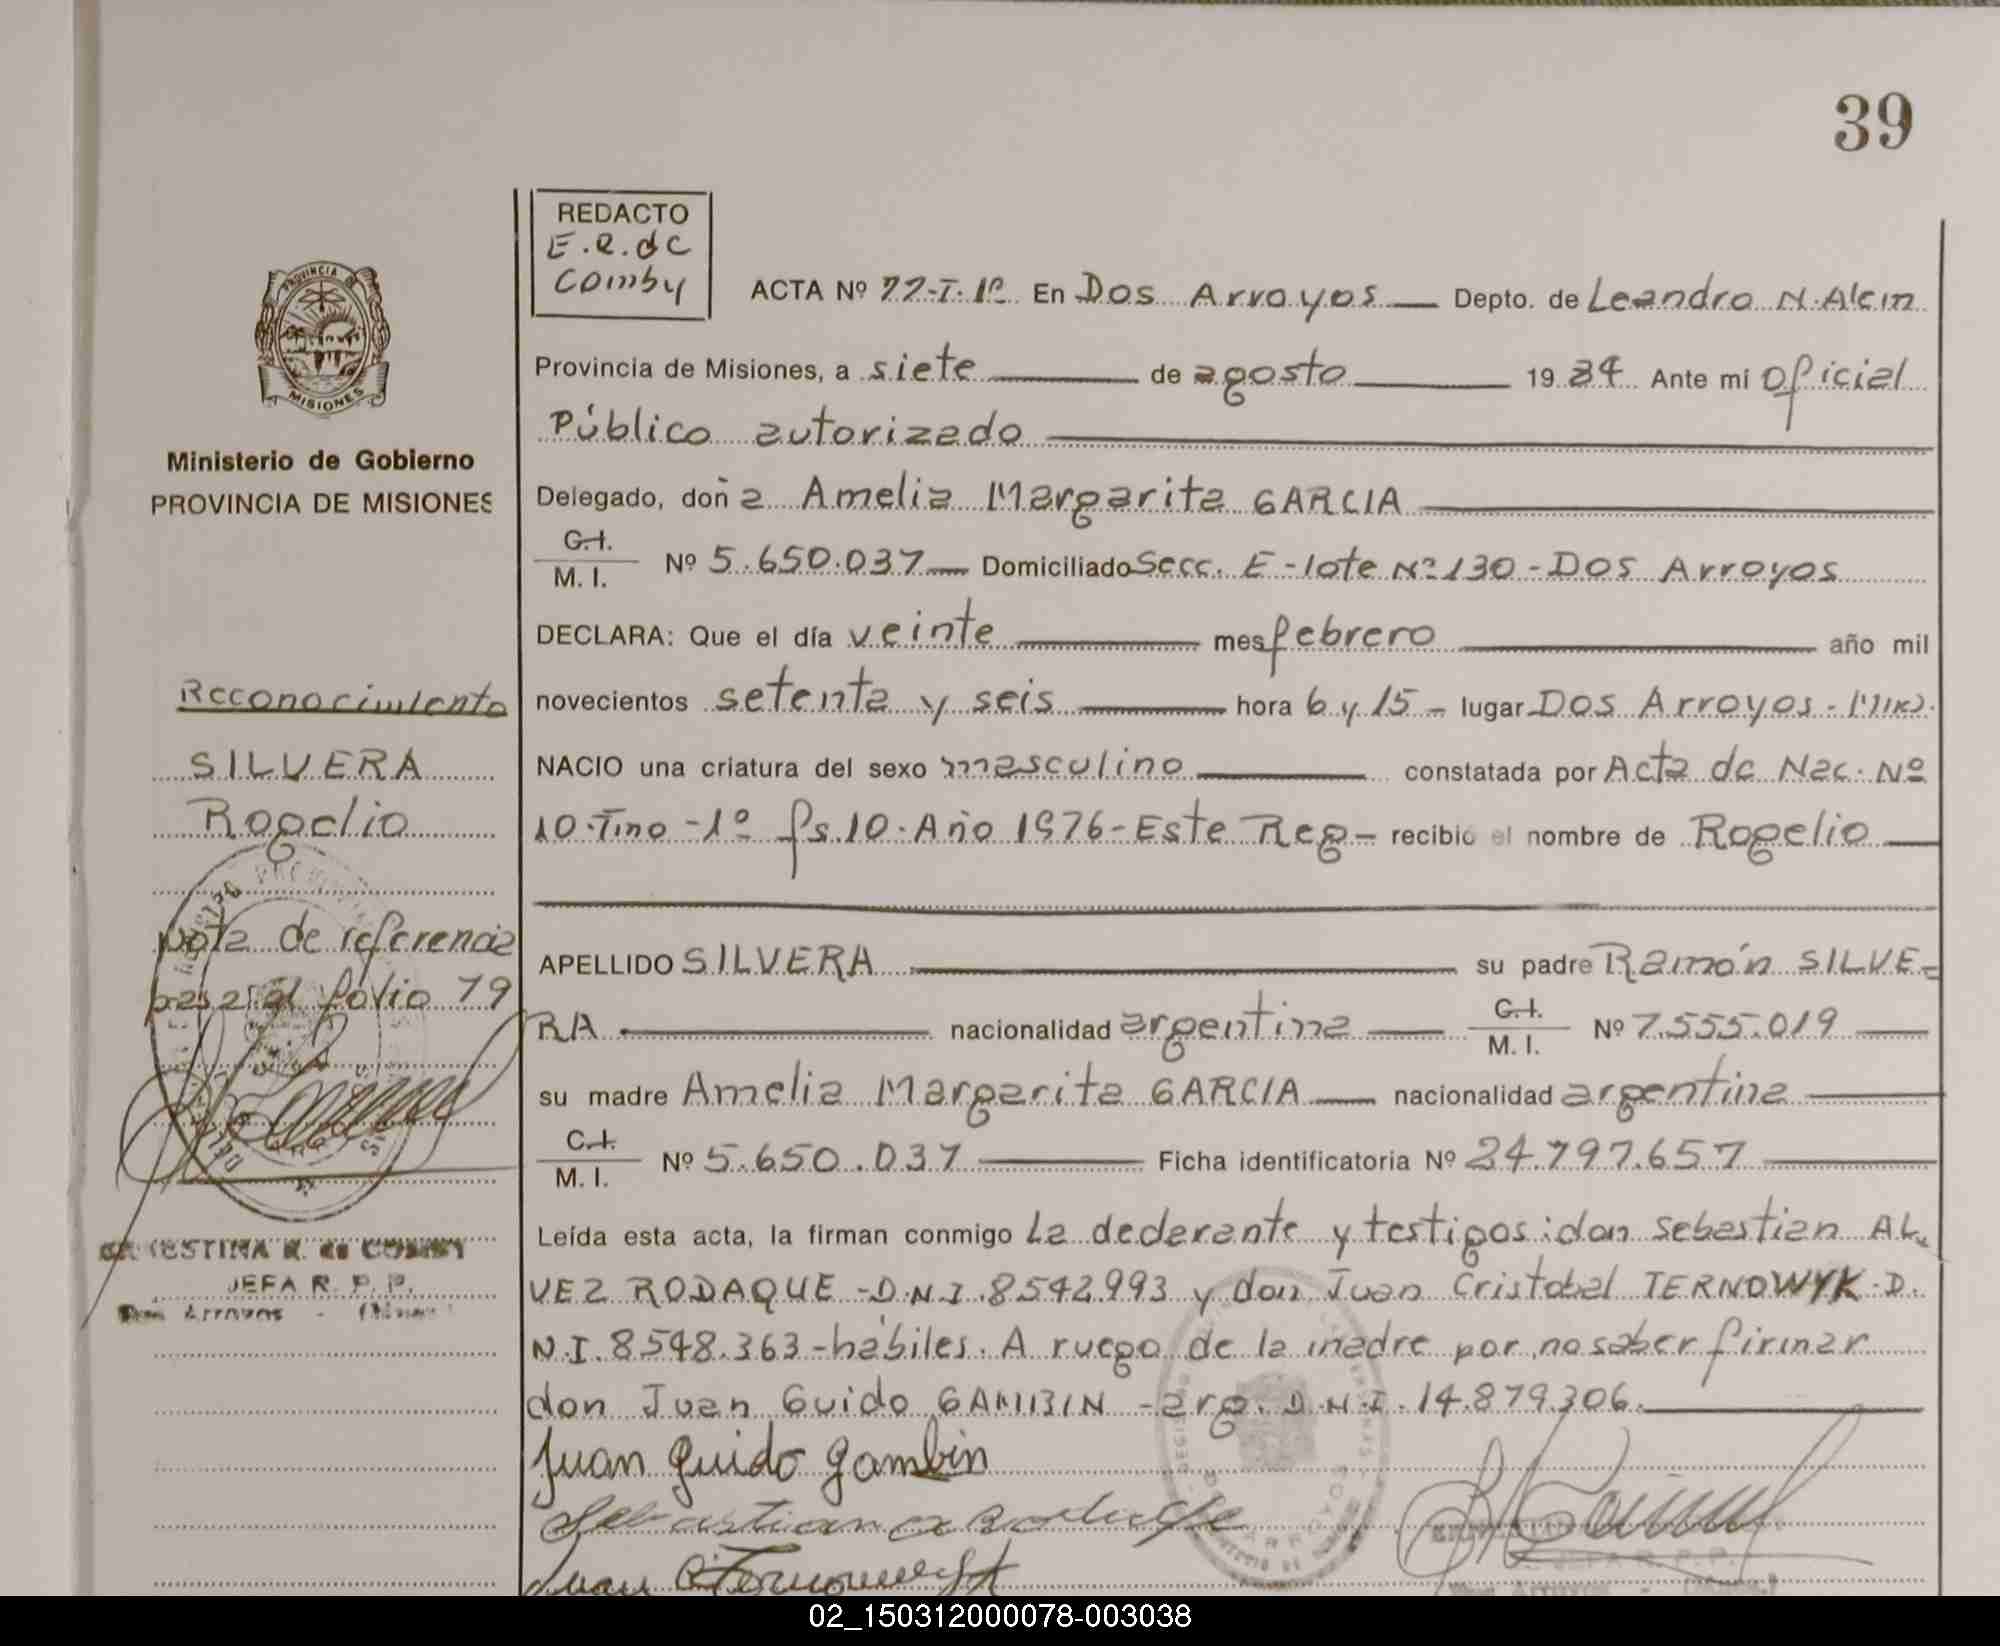 39
REDACTO
E.R.de
Comby
PROVINCIA DE
MISIONES
Ministerio de Gobierno
PROVINCIA DE MISIONES
ACTA Nº 77-T-1º En Dos Arroyos Depto. de Leandro N. Alem
Provincia de Misiones, a siete de agosto 1984 Ante mi oficial
Público autorizado
Delegado, doña Amelia Margarita GARCIA
C.I.
M. I. Nº 5.650.037 Domiciliado Secc. E - lote Nº 130 - Dos Arroyos
DECLARA: Que el día veinte mes febrero año mil
novecientos setenta y seis hora 6 y 15 - lugar Dos Arroyos -
NACIO una criatura del sexo masculino constatada por Acta de Nac. Nº
10-Tmo -1º fs.10-Año 1976-Este Reg- recibió el nombre de Rogelio
APELLIDO SILVERA su padre Ramón SILVE-
RA nacionalidad argentina C.I.
M. I. Nº 7.555.019
su madre Amelia Margarita GARCIA nacionalidad argentina
C.I.
M. I. Nº 5.650.037 Ficha identificatoria Nº 24.797.657
Leída esta acta, la firman conmigo la declarante y testigos: don Sebastian AL
VEZ RODAQUE -D.N.I.8542.993 y don Juan Cristobal TERNOWYK-D.
N.I.8548.363-hábiles. A ruego de la madre por no saber firmar
don Juan Guido GAMBIN -arg. D.N.I.14.879.306.
Juan Guido Gambin
Reconocimiento
SILVERA
Rogelio
nota de referencia
pasa al folio 79
JEFA R. P. P.
Dos Arroyos
02_150312000078-003038